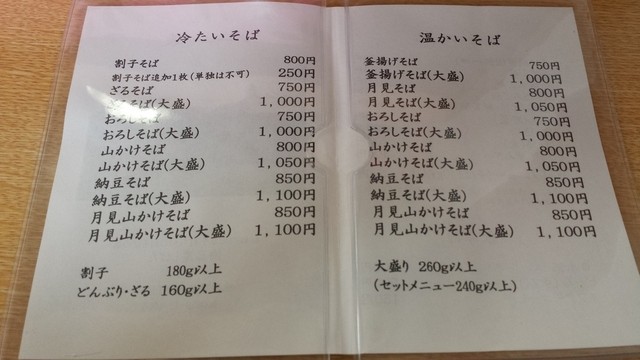 冷たいそば
割子そば 800円
割子そば追加1枚(単独は不可) 250円
ざるそば 750円
ざるそば(大盛) 1,000円
おろしそば 750円
おろしそば(大盛) 1,000円
山かけそば 800円
山かけそば(大盛) 1,050円
納豆そば 850円
納豆そば(大盛) 1,100円
月見山かけそば 850円
月見山かけそば(大盛) 1,100円
割子 180g以上
どんぶり・ざる 160g以上
温かいそば
釜揚げそば 750円
釜揚げそば(大盛) 1,000円
月見そば 800円
月見そば(大盛) 1,050円
おろしそば 750円
おろしそば(大盛) 1,000円
山かけそば 800円
山かけそば(大盛) 1,050円
納豆そば 850円
納豆そば(大盛) 1,100円
月見山かけそば 850円
月見山かけそば(大盛) 1,100円
大盛り 260g以上
(セットメニュー240g以上)